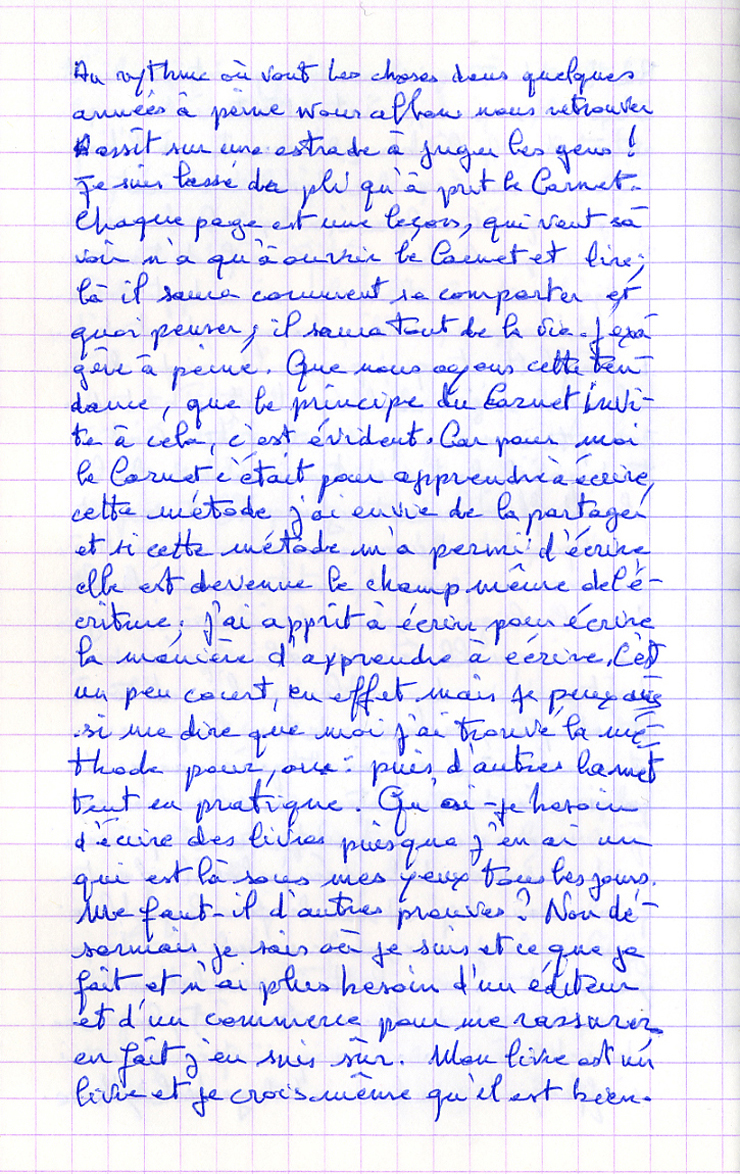 Au rythme où vont les choses dans quelques
années à peine nous allons nous retrouver
assit sur une estrade à juger les gens !
Je suis lassé du pli qu'à prit le Carnet.
Chaque page est une leçon, qui veut sa
voir n'a qu'à ouvrir le Carnet et lire;
là il saura comment se comporter et
quoi penser; il saura tout de la vie. J'exa
gère à peine. Que nous ayons cette ten
dance, que le principe du Carnet invi-
te à cela, c'est évident. Car pour moi
le Carnet c'était pour apprendre à écrire,
cette métode j'ai envie de la partager
et si cette métode m'a permi d'écrire
elle est devenue le champ même de l'é-
criture; j'ai apprit à écrire pour écrire
la manière d'apprendre à écrire. C'est
un peu court, en effet mais je peux aus
si me dire que moi j'ai trouvé la mé
thode pour, puis d'autres la met
tent en pratique. Qu'ai-je besoin
d'écrire des livres puisque j'en ai un
qui est là sous mes yeux tous les jours.
Me faut-il d'autres preuves ? Non dé-
sormais je sais où je suis et ce que je
fait et n'ai plus besoin d'un éditeur
et d'un commerce pour me rassurer
en fait j'en suis sûr. Mon livre est un
livre et je crois même qu'il est bien.